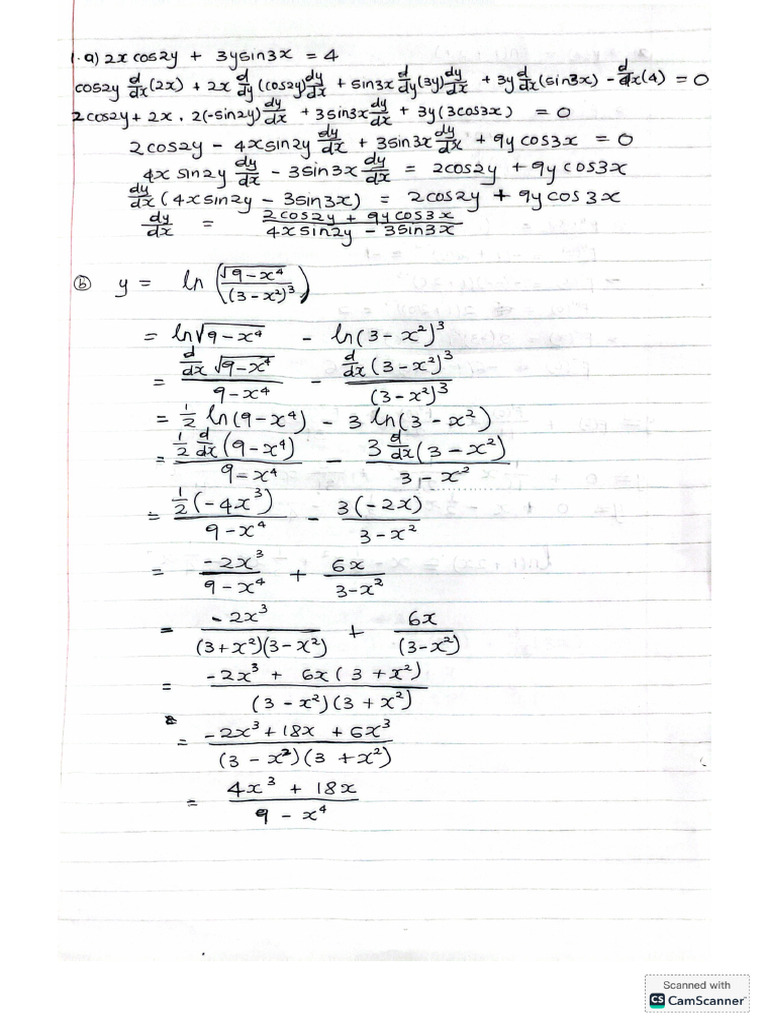 1. a) 2x cos2y + 3y sin3x = 4
cos2y d/dx (2x) + 2x d/dy (cos2y) dy/dx + sin3x d/dy (3y) dy/dx + 3y d/dx (sin3x) - d/dx (4) = 0
2cos2y + 2x . 2(-sin2y) dy/dx + 3sin3x dy/dx + 3y (3cos3x) = 0
2cos2y - 4x sin2y dy/dx + 3sin3x dy/dx + 9y cos3x = 0
4x sin2y dy/dx - 3sin3x dy/dx = 2cos2y + 9y cos3x
dy/dx (4x sin2y - 3sin3x) = 2cos2y + 9y cos3x
dy/dx = (2cos2y + 9y cos3x)/(4x sin2y - 3sin3x)
ⓑ y = ln (√(9-x⁴)/(3-x²)³)
= ln√(9-x⁴) - ln(3-x²)³
= (d/dx √(9-x⁴))/(9-x⁴) - (d/dx (3-x²)³)/(3-x²)³
= ½ ln(9-x⁴) - 3 ln(3-x²)
= (½ d/dx (9-x⁴))/(9-x⁴) - (3 d/dx (3-x²))/(3-x²)
= (½(-4x³))/(9-x⁴) - (3(-2x))/(3-x²)
= (-2x³)/(9-x⁴) + (6x)/(3-x²)
= (-2x³)/((3+x²)(3-x²)) + (6x)/((3-x²))
= (-2x³ + 6x(3+x²))/((3-x²)(3+x²))
= (-2x³ + 18x + 6x³)/((3-x²)(3+x²))
= (4x³ + 18x)/(9-x⁴)
Scanned with
CS CamScanner